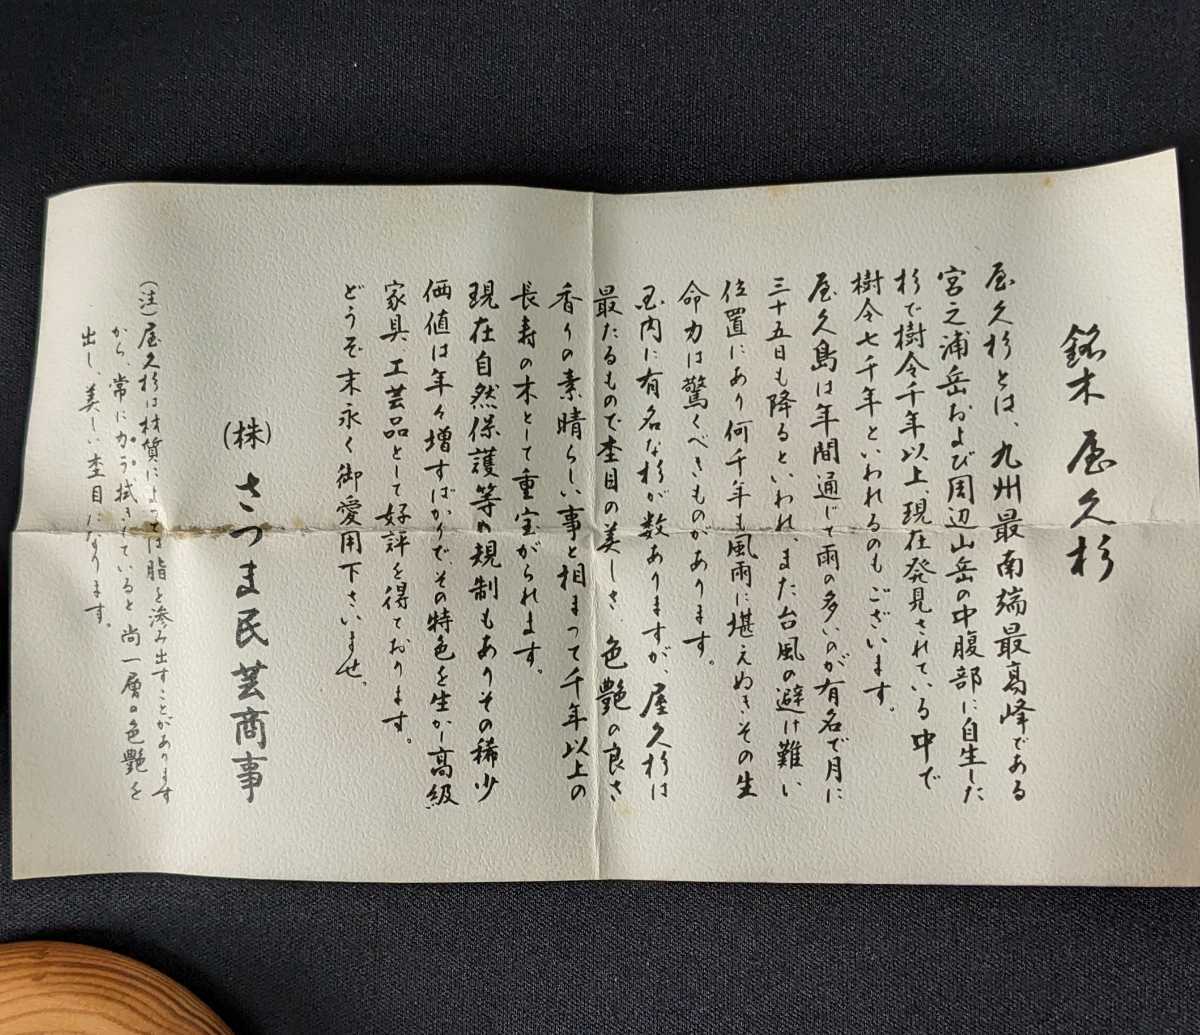 銘木 屋久杉
屋久杉とは、九州最南端最高峰である
宮之浦岳および周辺山岳の中腹部に自生した
杉で樹令千年以上、現在発見されている中で
樹令七千年といわれるのもございます。
屋久島は年間通じて雨の多いのが有名で月に
三十五日も降るといわれ、また台風の避け難い
位置にあり何千年も風雨に堪えぬきその生
命力は驚くべきものがあります。
国内に有名な杉が数ありますが、屋久杉は
最たるもので杢目の美しさ、色艶の良さ
香りの素晴らしい事と相まって千年以上の
長寿の木として重宝がられます。
現在自然保護等の規制もありその稀少
価値は年々増すばかりで、その特色を生かし高級
家具、工芸品として好評を得ております。
どうぞ末永く御愛用下さいませ。
(株)さつま民芸商事
(注)屋久杉は材質によっては脂を滲み出すことがあります
から、常にカラ拭きしていると尚一層の色艶を
出し、美しい杢目になります。